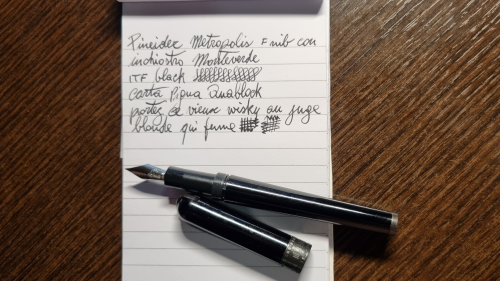 Pineider Metropolis F nib con
inchiostro Monteverde
ITF black
Carta Pigna Quablock
portez ce vieux wisky au juge
blonde qui fume